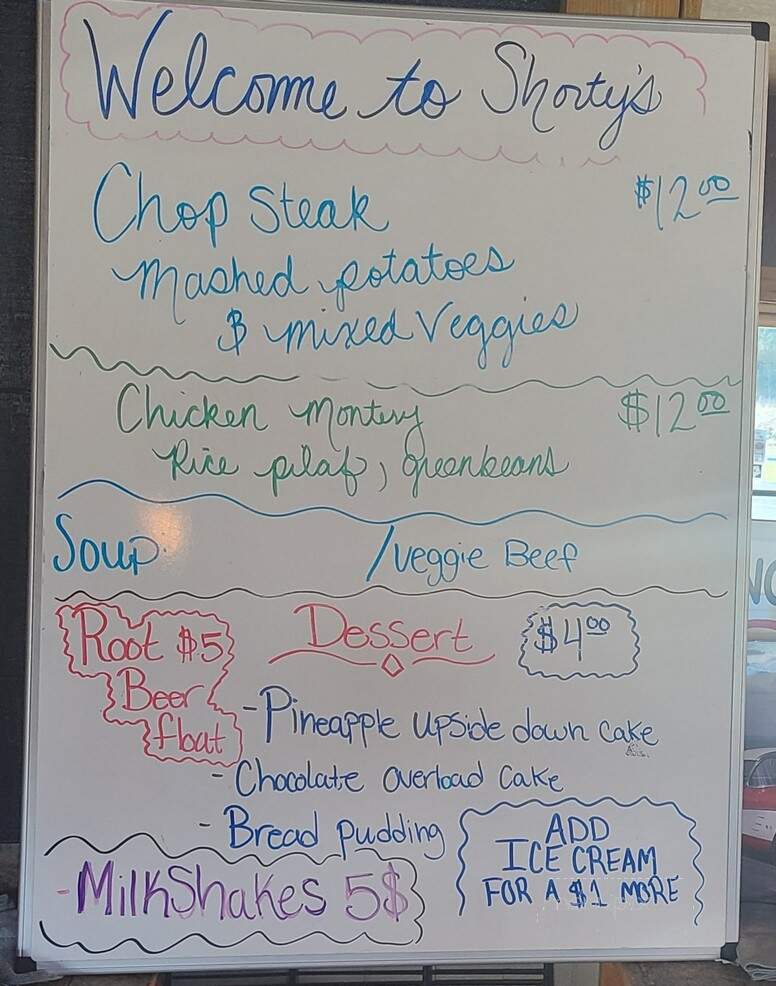 Welcome to Shorty's
Chop Steak $12.00
Mashed potatoes
& mixed Veggies
Chicken Montery $12.00
Rice pilaf, greenbeans
Soup /veggie Beef
Root $5
Beer
float
Dessert $4.00
- Pineapple upside down cake
- Chocolate overload Cake
- Bread pudding
- MilkShakes 5$
ADD
ICE CREAM
FOR A $1 MORE